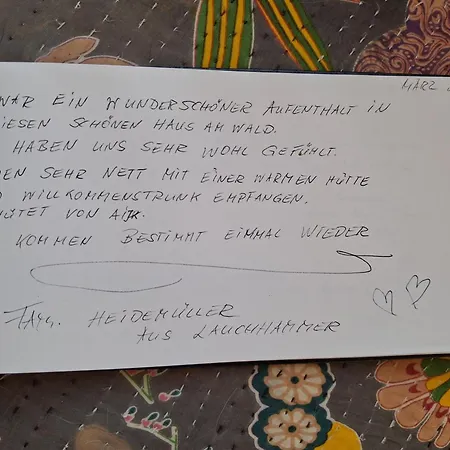 MÄRZ
WAR EIN WUNDERSCHÖNER AUFENTHALT IN
IESEN SCHÖNEN HAUS AM WALD.
HABEN UNS SEHR WOHL GEFÜHLT.
EN SEHR NETT MIT EINER WARMEN HÜTTE
WILLKOMMENSTRUNK EMPFANGEN.
TET VON
KOMMEN BESTIMMT EINMAL WIEDER
FAM. HEIDEMÜLLER
AUS LAUCHHAMMER